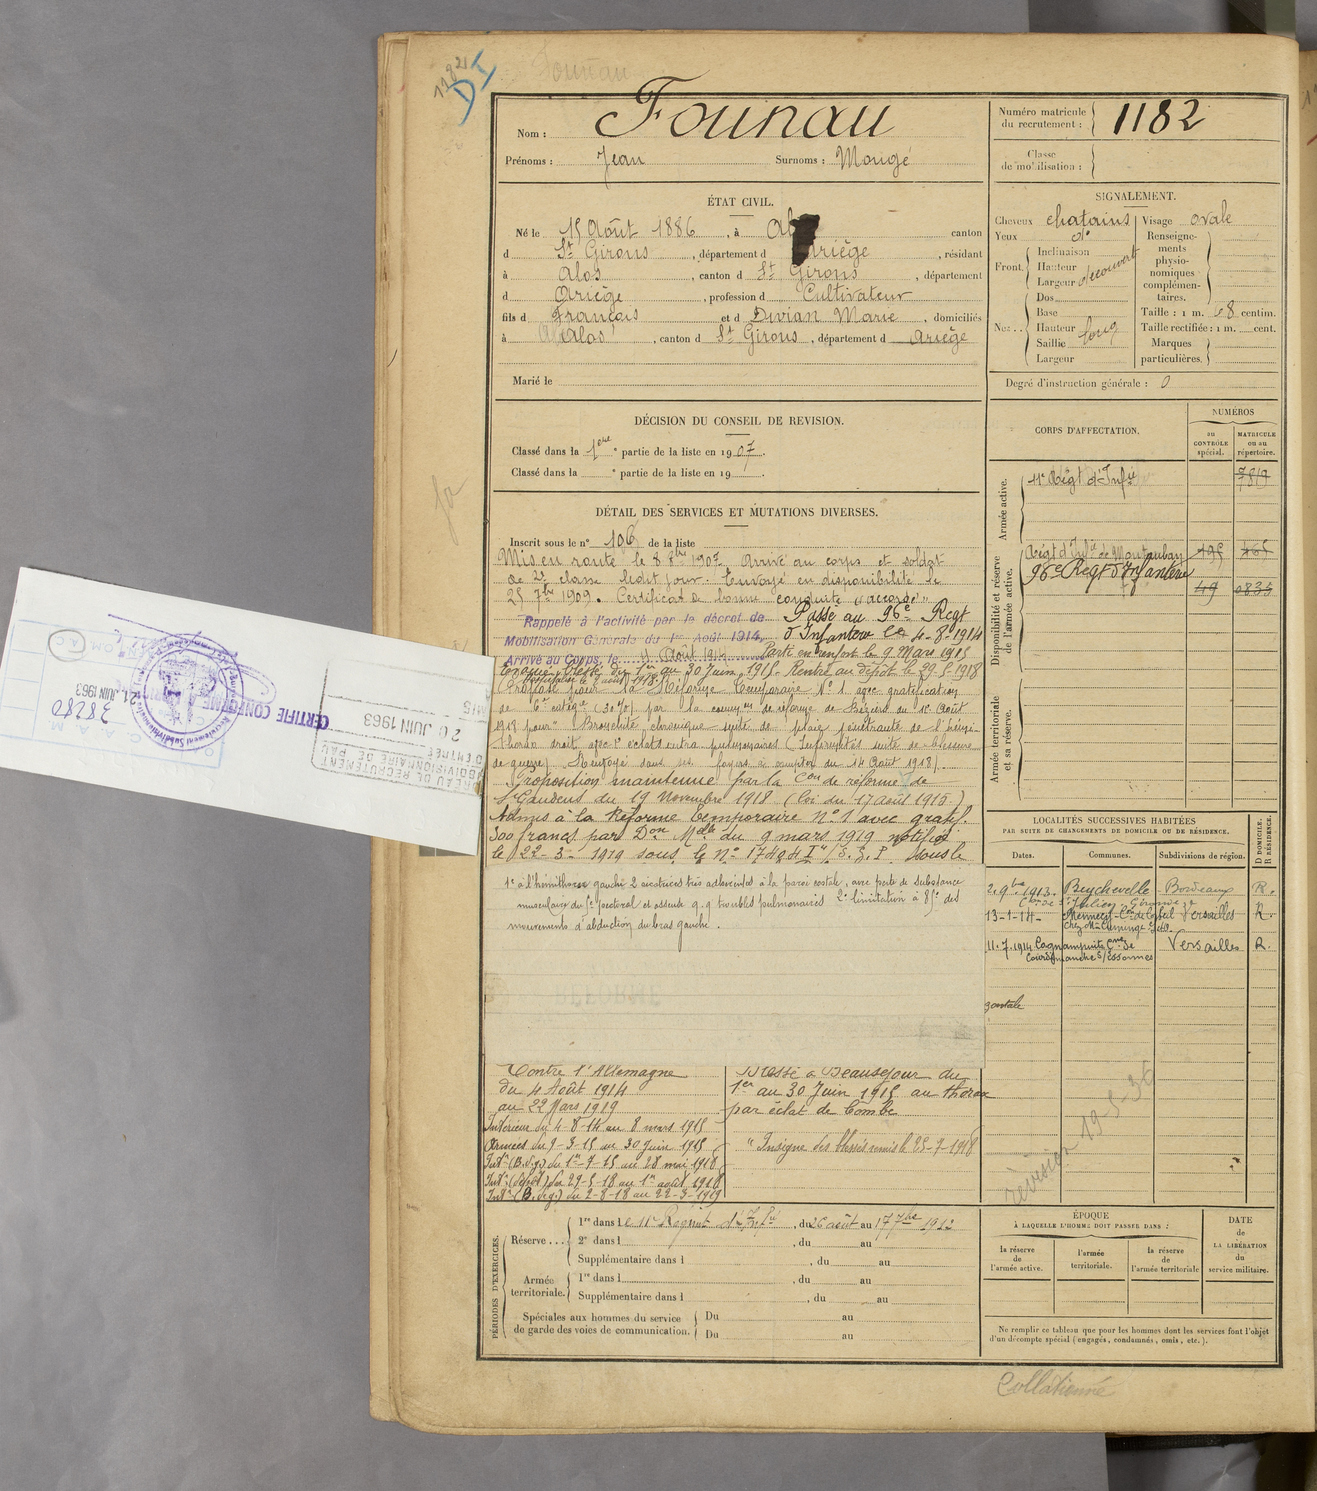 1182
DI
Founau
Nom : Founau
Prénoms : Jean Surnoms : Mongé
Numéro matricule
du recrutement : 1182
Classe
de mobilisation :
ÉTAT CIVIL.
Né le 15 Août 1886, à canton
d St Girons, département d Ariège, résidant
à Alos, canton d St Girons, département
d Ariège, profession d Cultivateur
fils d François et d Divian Marie, domiciliés
à Alos, canton d St Girons, département d Ariège
Marié le
SIGNALEMENT.
Cheveux chatains Visage ovale
Yeux do
Front. Inclinaison
Hauteur
Largeur découvert
Nez.. Dos
Base
Hauteur long
Saillie
Largeur
Renseigne-
ments
physio-
nomiques
complémen-
taires.
Taille : 1 m. 68 centim.
Taille rectifiée : 1 m. cent.
Marques
particulières.
Degré d'instruction générale : 0
DÉCISION DU CONSEIL DE REVISION.
Classé dans la 1ère partie de la liste en 1907.
Classé dans la e partie de la liste en 19 .
CORPS D'AFFECTATION.
NUMÉROS
au
CONTRÔLE
spécial.
MATRICULE
ou au
répertoire.
Armée active.
11e Régt d'Infie 7819
Disponibilité et réserve
de l'armée active.
Régt d'Infie de Montauban
96e Regt d'Infanterie
49 0835
Armée territoriale
et sa réserve.
DÉTAIL DES SERVICES ET MUTATIONS DIVERSES.
Inscrit sous le n° 106 de la liste
Mis en route le 8 8bre 1907. Arrivé au corps et soldat
de 2e classe ledit jour. Envoyé en disponibilité le
25 7bre 1909. Certificat de bonne conduite "accordé"
Rappelé à l'activité par le décret de
Mobilisation Générale du 1er Août 1914,
Arrivé au Corps, le 4 Août 1914
Passé au 96e Regt
d'Infanterie le 4-8-1914
Parti en renfort le 9 Mars 1915
Evacué blessé du 1er au 30 Juin 1915. Rentré au dépôt le 29-5-1918
Proposé pour la Réforme Temporaire N° 1 avec gratification
de 6e catégie (30%) par la comon de réforme de Béziers du 1er Août
1918 pour "Bronchite chronique suite de plaie pénétrante de l'hémi-
thorax droit avec éclats intra pulmonaires (Infirmités suite de blessure
de guerre). Renvoyé dans ses foyers à compter du 14 Août 1918.
Proposition maintenue par la Con de réforme de
St Gaudens du 19 Novembre 1918 (loi du 17 août 1915)
Admis à la Réforme temporaire N° 1 avec gratif.
300 francs par Don Melle du 9 mars 1919 notifiée
le 22-3-1919 sous le N° 17404 I"/S.G.P. sous le
1° à l'hémithorax gauche 2 cicatrices très adhérentes à la paroi costale, avec perte de substance
musculaire du gd pectoral et ensuite q.q. troubles pulmonaires 2° limitation à 85° des
mouvements d'abduction du bras gauche.
Contre l'Allemagne
du 4 Août 1914
au 22 Mars 1919
Intérieur du 4-8-14 au 8 mars 1915
Armées du 9-3-15 au 30 Juin 1915
Intr (B. de g.) du 1er-7-15 au 28 mai 1918
Intr (dépôt) du 29-5-18 au 1er août 1918
Intr (B. de g.) du 2-8-18 au 22-3-1919
Blessé à Beauséjour du
1er au 30 Juin 1915 au thorax
par éclat de bombe
"Insigne des blessés remis le 25-7-1918
LOCALITÉS SUCCESSIVES HABITÉES
PAR SUITE DE CHANGEMENTS DE DOMICILE OU DE RÉSIDENCE.
Dates. Communes. Subdivisions de région. D DOMICILE. R RÉSIDENCE.
2.9bre 1913. Beychevelle Bordeaux R.
St Julien - Gironde
13-1-14 - Mennecy - Con de Corbeil Versailles R.
11.7.1914 Versailles R.
Courdimanche S/Essonnes
révision 19-5-36
PÉRIODES D'EXERCICES.
Réserve... 1re dans le 11e Régiment d'Infie, du 26 août au 17 7bre 1912
2e dans l , du au
Supplémentaire dans l , du au
Armée
territoriale. 1re dans l , du au
Supplémentaire dans l , du au
Spéciales aux hommes du service
de garde des voies de communication. Du au
Du au
ÉPOQUE
À LAQUELLE L'HOMME DOIT PASSER DANS :
la réserve
de
l'armée active.
l'armée
territoriale.
la réserve
de
l'armée territoriale
DATE
de
LA LIBÉRATION
du
service militaire.
Ne remplir ce tableau que pour les hommes dont les services font l'objet
d'un décompte spécial (engagés, condamnés, omis, etc.).
Collationné
CERTIFIÉ CONFORME
21 JUIN 1963
38280
BUREAU DE RECRUTEMENT
SUBDIVISIONNAIRE DE PAU
ENTRÉE
20 JUIN 1963